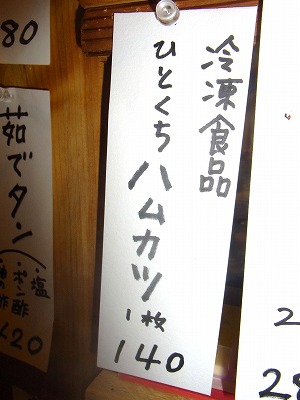 冷凍食品
ひとくち ハムカツ
1枚
140
茹でタン
塩
ポン酢
酢
420
80
2
28